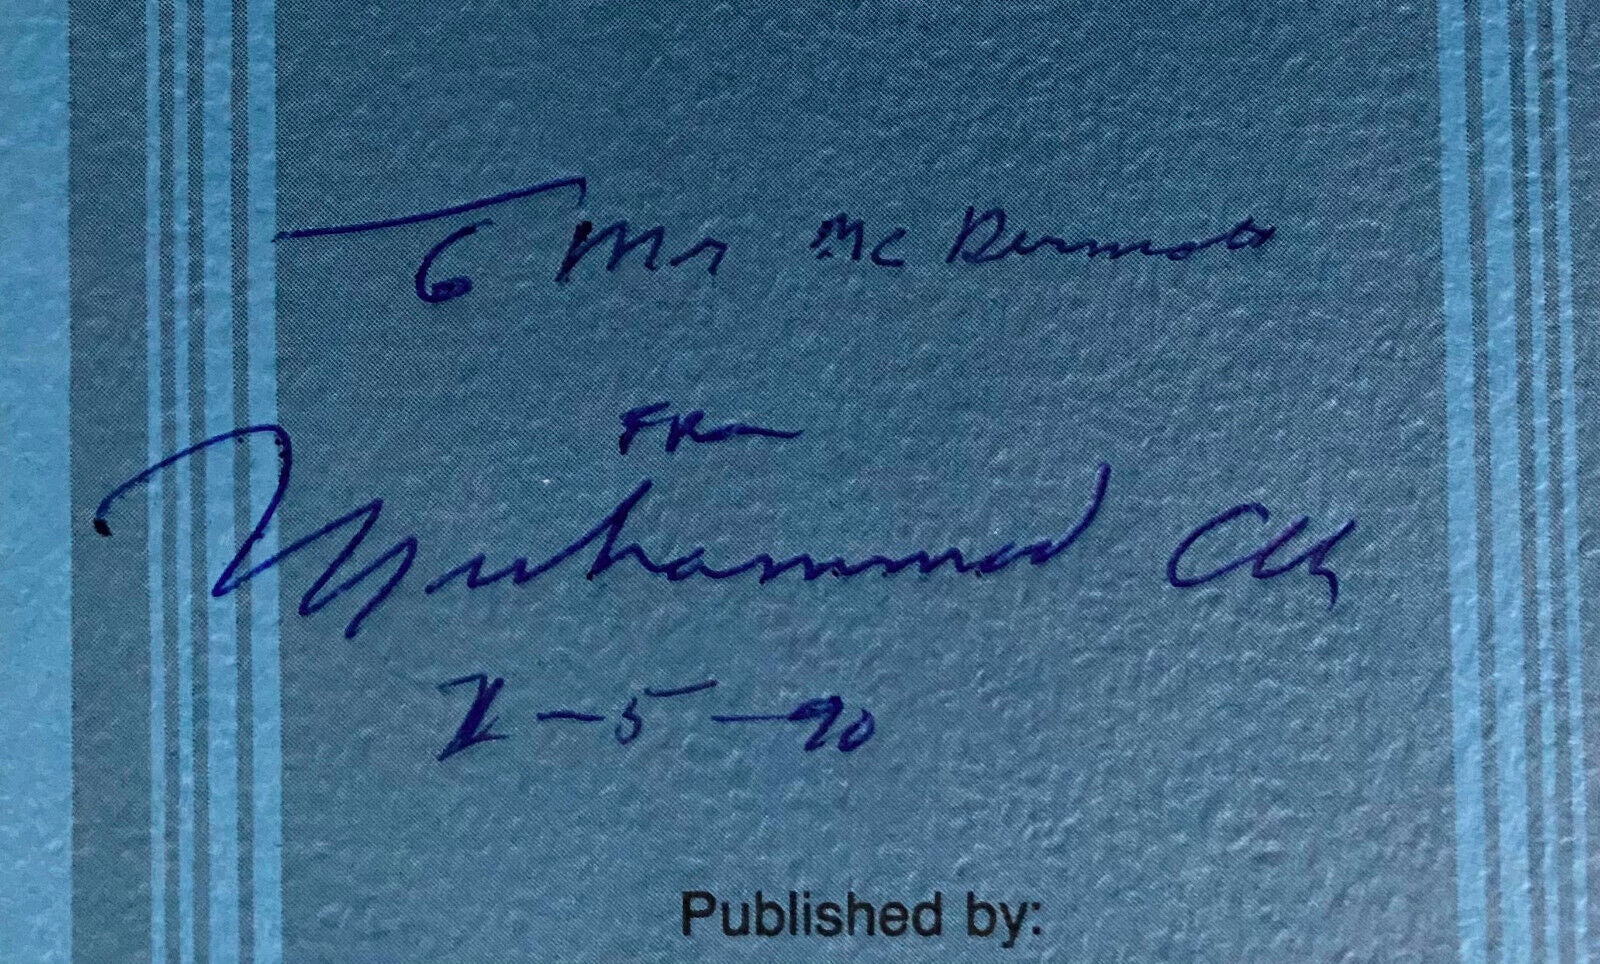 To Mr Mc Dermott
FRom
Muhammad Ali
-5-90
Published by: